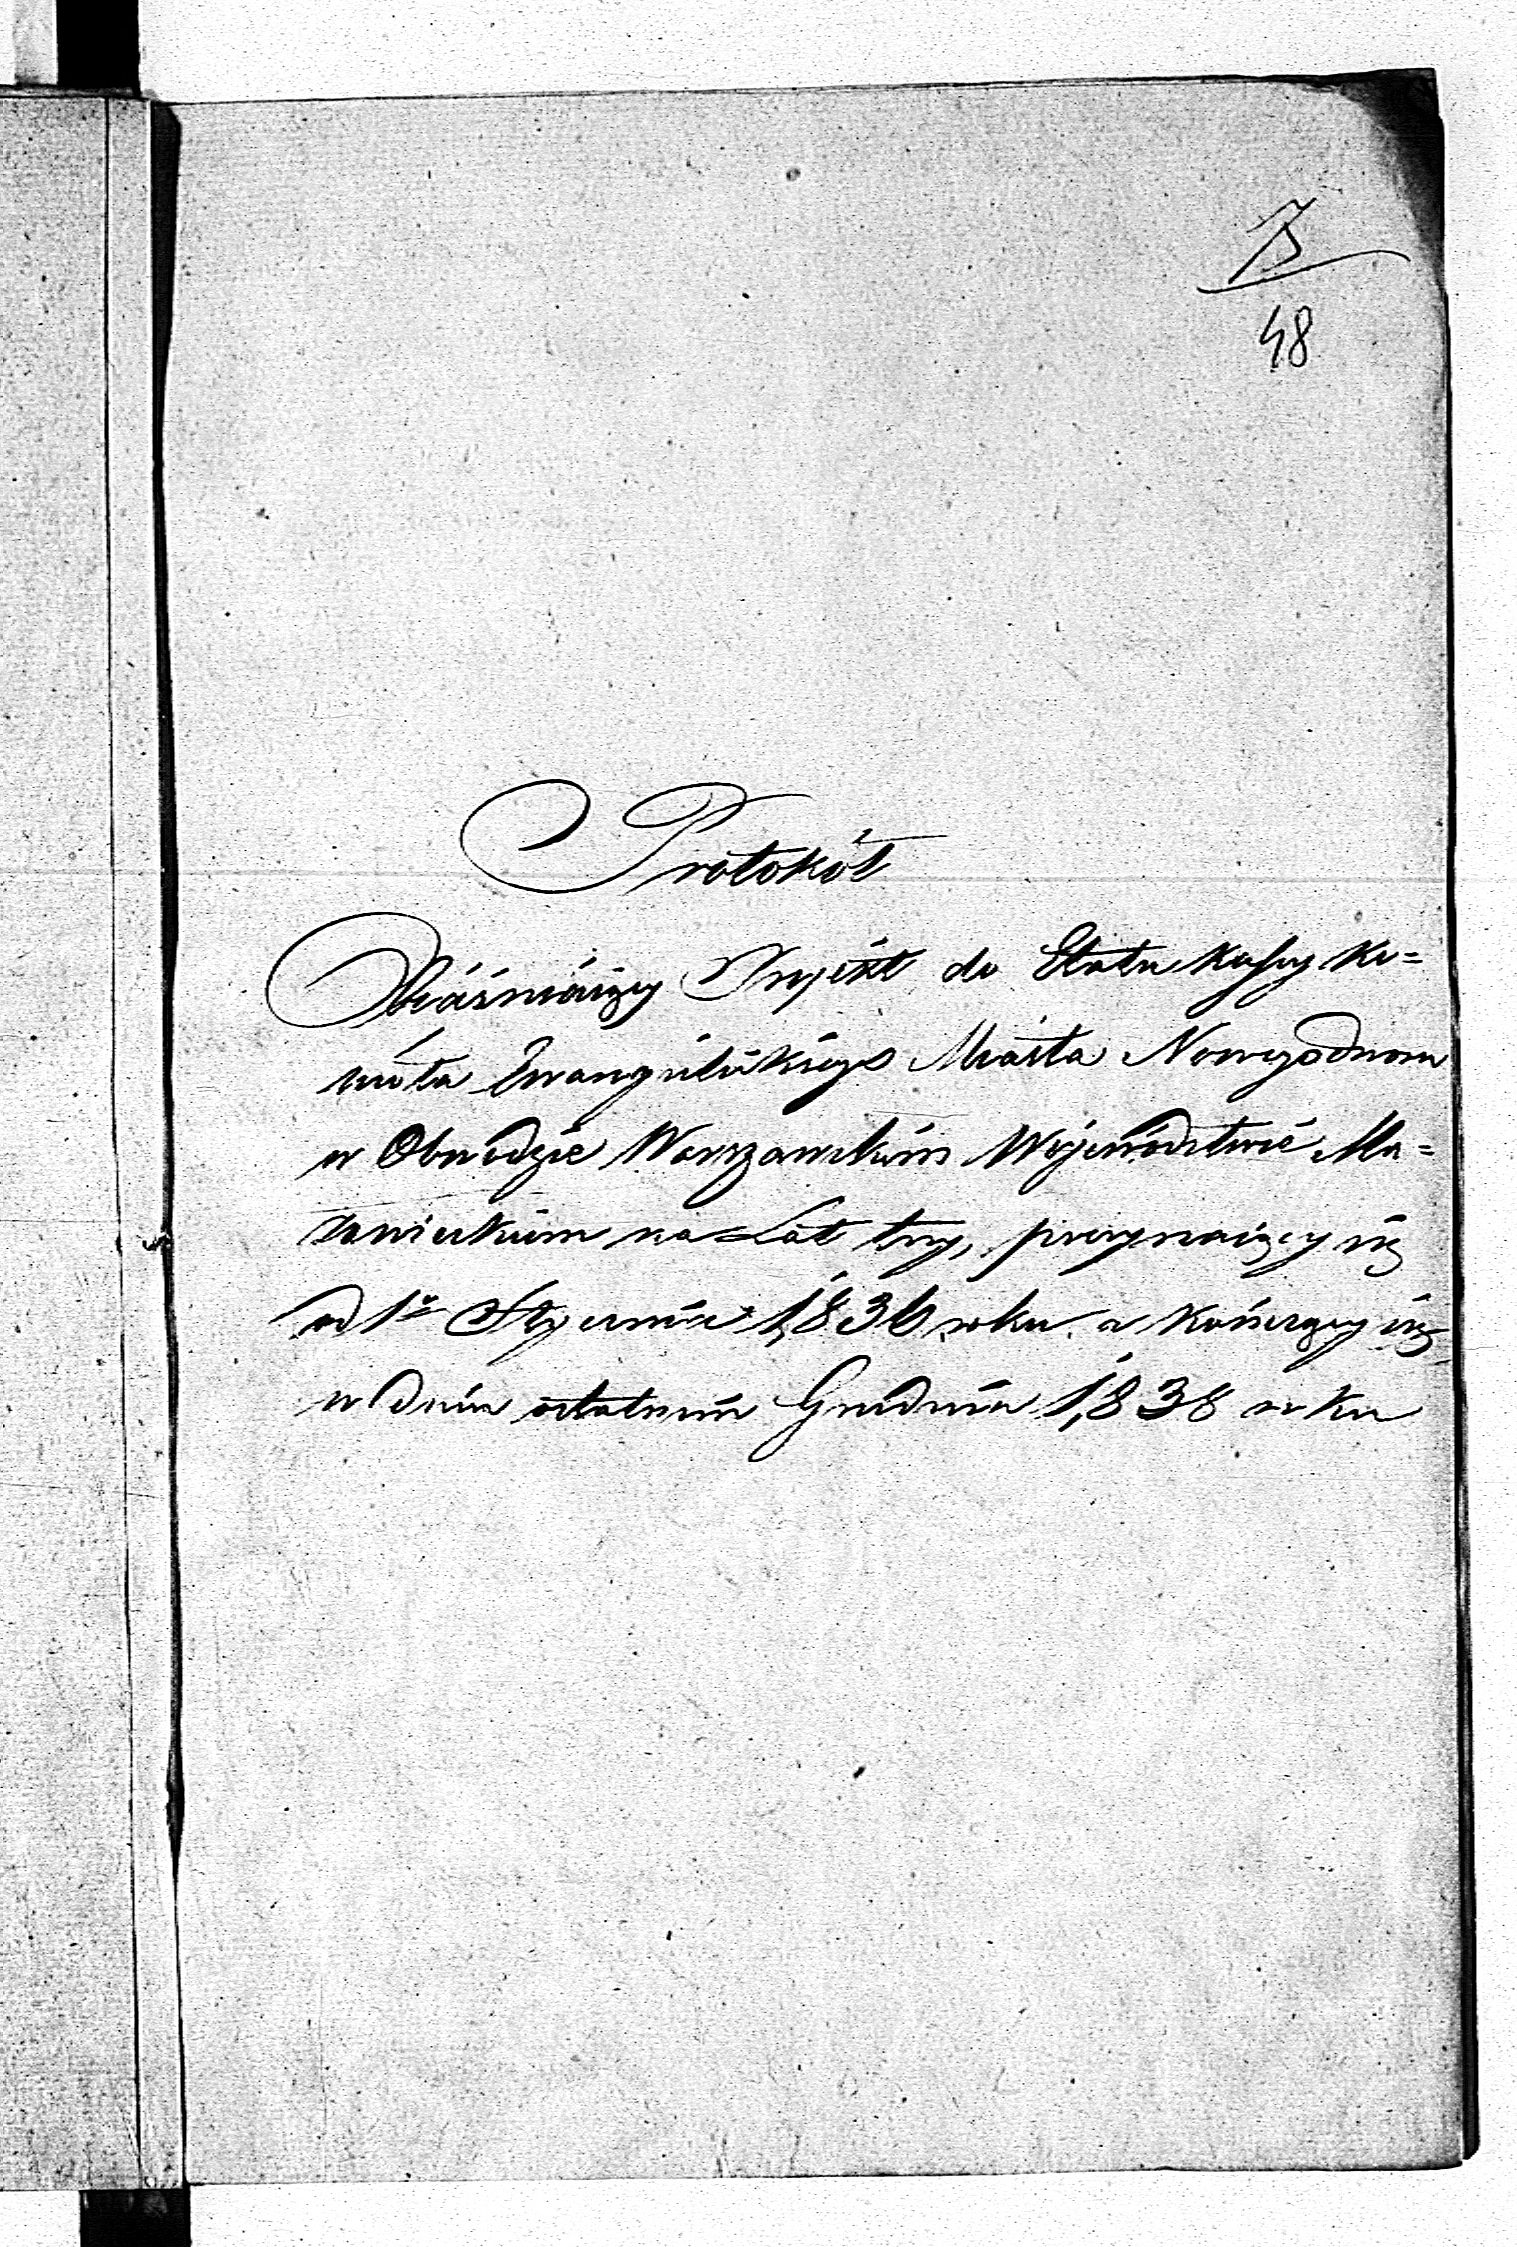 48
Protokół
Obiaśniaiący Projekt do Etatu kassy ko=
ścioła Ewangielickiego Miasta Nowegodworu
w Obwodzie Warszawskim Wojewodztwie Ma=
zowieckiem na Lat trzy, poczynaiący się
od 1o Stycznia 1836 roku a kończący się
w dniu ostatnim Grudnia 1838 roku